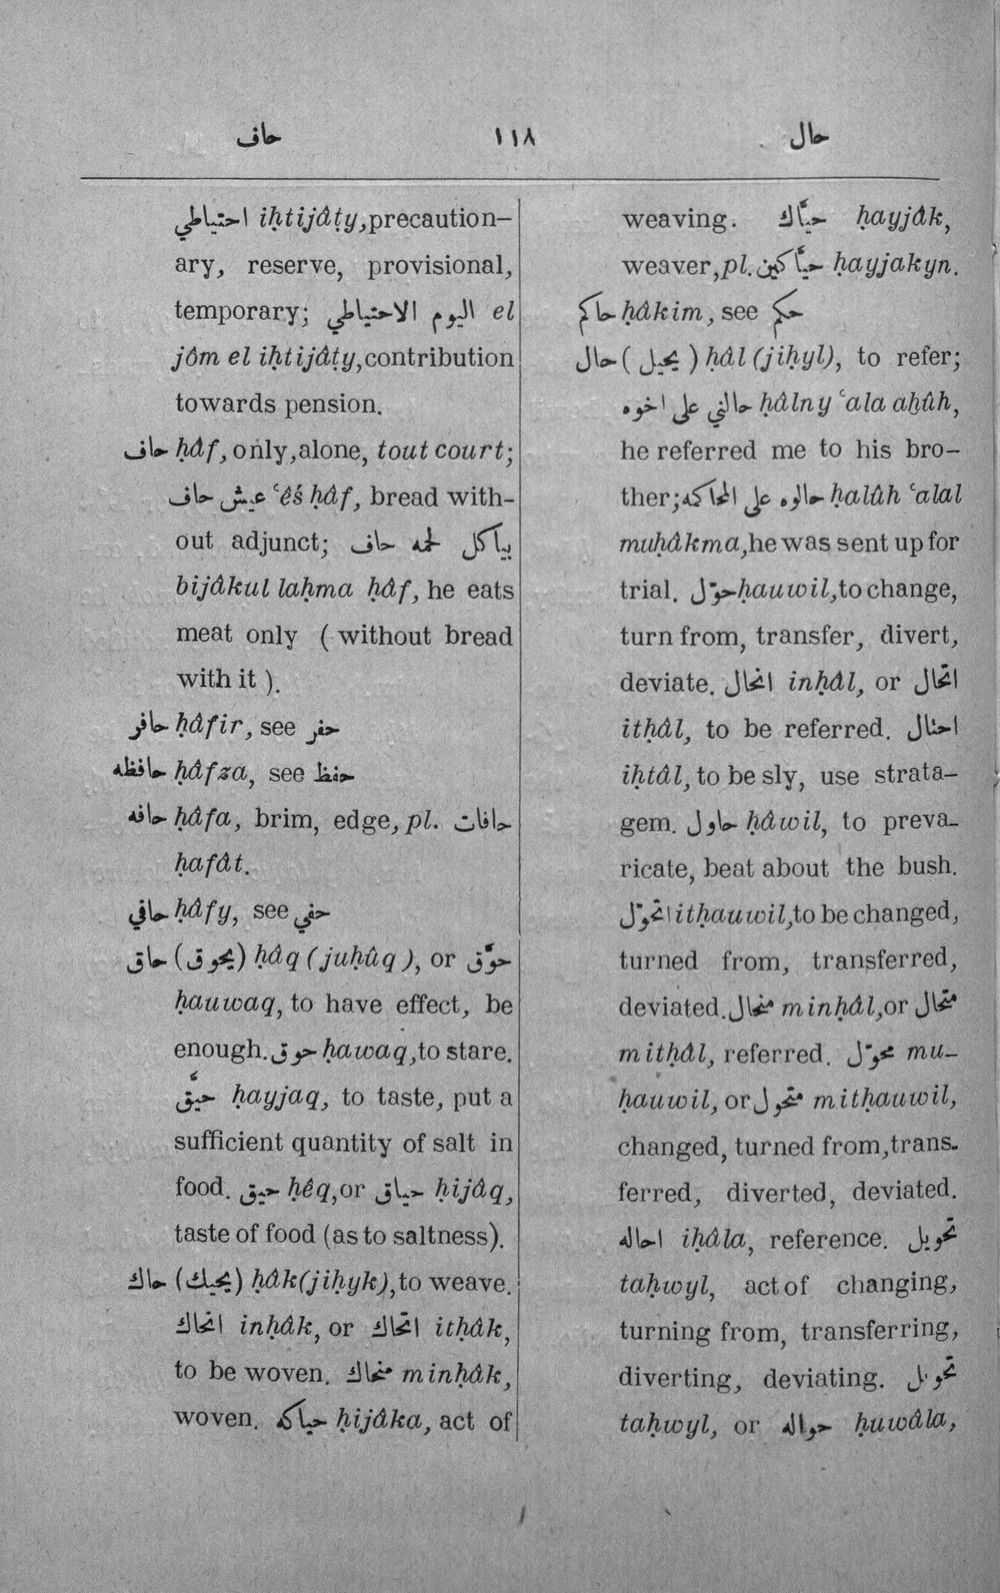 حاف ١١٨ حال
احتياطي iḥtijâṭy, precaution-
ary, reserve, provisional,
temporary; اليوم الاحتياطي el
jôm el iḥtijâṭy, contribution
towards pension.
حاف ḥâf, only, alone, tout court;
عيش حاف ʿêś ḥâf, bread with-
out adjunct; بياكل لحمه حاف
bijâkul laḥma ḥâf, he eats
meat only ( without bread
with it ).
حافر ḥâfir, see حفر
حافظه ḥâfẓa, see حفظ
حافه ḥâfa, brim, edge, pl. حافات
ḥafât.
حافي ḥâfy, see حفي
حاق (يحوق) ḥâq (juḥûq ), or حوّق
ḥauwaq, to have effect, be
enough. حوق ḥawaq, to stare.
حيّق ḥayjaq, to taste, put a
sufficient quantity of salt in
food. حيق ḥêq, or حياق ḥijâq,
taste of food (as to saltness).
حاك (يحيك) ḥâk (jiḥyk), to weave.
انحاك inḥâk, or اتحاك itḥâk,
to be woven. منحاك minḥâk,
woven. حياكه ḥijâka, act of
weaving. حيّاك ḥayjâk,
weaver, pl. حيّاكين ḥayjakyn.
حاكم ḥâkim, see حكم
حال ( يحيل ) ḥâl (jiḥyl), to refer;
حالني على اخوه ḥâlny ʿala aḫûh,
he referred me to his bro-
ther; حالوه على المحاكمه ḥalûh ʿalal
muḥâkma, he was sent up for
trial. حوّل ḥauwil, to change,
turn from, transfer, divert,
deviate. انحال inḥâl, or اتحال
itḥâl, to be referred. احتال
iḥtâl, to be sly, use strata-
gem. حاول ḥâwil, to preva-
ricate, beat about the bush.
اتحوّل itḥauwil, to be changed,
turned from, transferred,
deviated. منحال minḥâl, or متحال
mitḥâl, referred. محوّل mu-
ḥauwil, or متحول mitḥauwil,
changed, turned from, trans-
ferred, diverted, deviated.
احاله iḥâla, reference. تحويل
taḥwyl, act of changing,
turning from, transferring,
diverting, deviating. تحويل
taḥwyl, or حواله ḥuwâla,